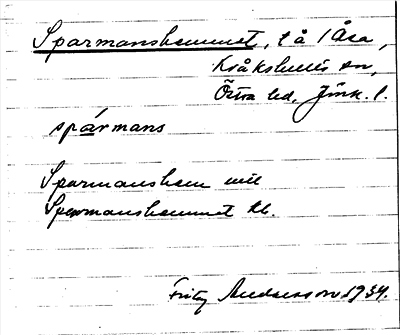 Sparmanshemmet, t å 1 Åsa,
Kråkshults sn,
Östra hd, Jönk. l.
spármans
Sparmanshem
Sparmanshemmet tb.
Fritz Andersson 1934.